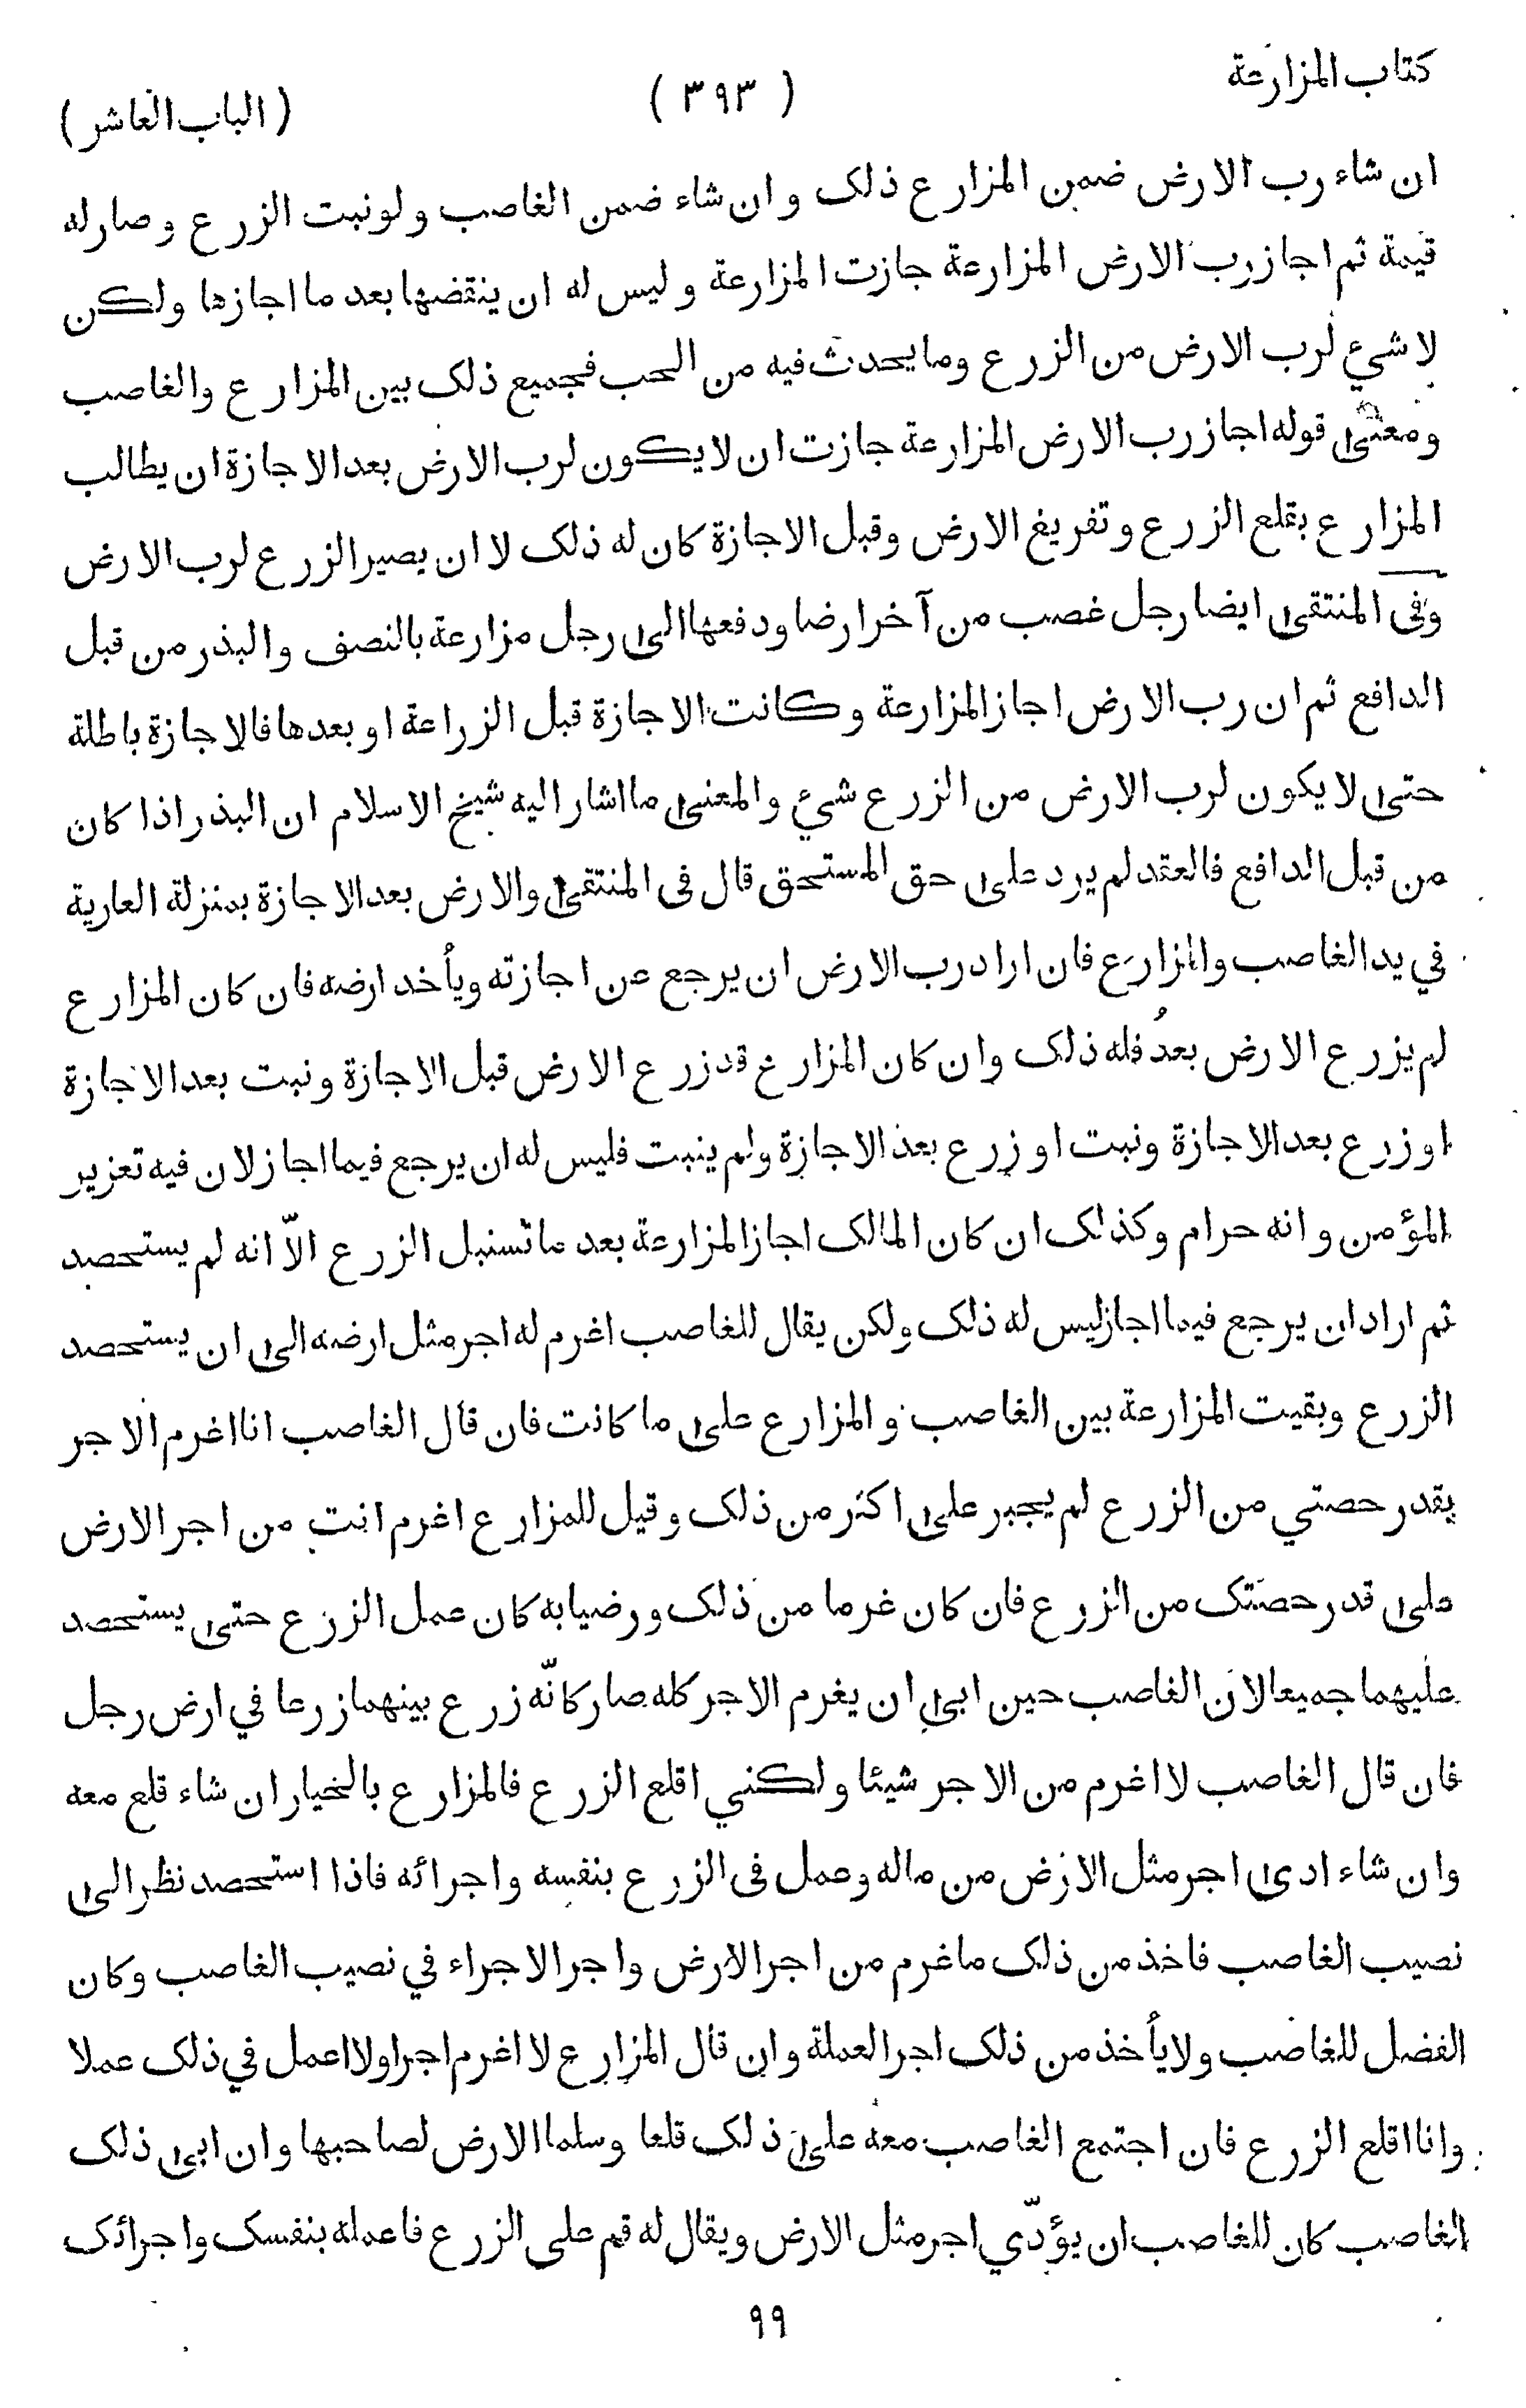 كتاب المزارعة
( ٣٩٣ )
( الباب العاشر )
ان شاء رب الارض ضمن المزارع ذلك و ان شاء ضمن الغاصب و لو نبت الزرع و صار له
قيمة ثم اجاز رب الارض المزارعة جازت المزارعة و ليس له ان ينقضها بعد ما اجازها ولكن
لا شيء لرب الارض من الزرع وما يحدث فيه من الحب فجميع ذلك بين المزارع والغاصب
و معنى قوله اجاز رب الارض المزارعة جازت ان لا يكون لرب الارض بعد الاجازة ان يطالب
المزارع بقلع الزرع و تفريغ الارض وقبل الاجازة كان له ذلك لا ان يصير الزرع لرب الارض
وفى المنتقى ايضا رجل غصب من آخر ارضا ودفعها الى رجل مزارعة بالنصف والبذر من قبل
الدافع ثم ان رب الارض اجاز المزارعة و كانت الاجازة قبل الزراعة او بعدها فالاجازة باطلة
حتى لا يكون لرب الارض من الزرع شيء والمعنى ما اشار اليه شيخ الاسلام ان البذر اذا كان
من قبل الدافع فالعقد لم يرد على حق المستحق قال فى المنتقى والارض بعد الاجازة بمنزلة العارية
في يد الغاصب والمزارع فان اراد رب الارض ان يرجع عن اجازته ويأخد ارضه فان كان المزارع
لم يزرع الارض بعدُ فله ذلك وان كان المزارع قد زرع الارض قبل الاجازة ونبت بعد الاجازة
او زرع بعد الاجازة ونبت او زرع بعد الاجازة ولم ينبت فليس له ان يرجع فيما اجاز لان فيه تعزير
المؤمن و انه حرام وكذلك ان كان المالك اجاز المزارعة بعد ما تسنبل الزرع الّا انه لم يستحصد
ثم اراد ان يرجع فيما اجاز ليس له ذلك ولكن يقال للغاصب اغرم له اجر مثل ارضه الى ان يستحصد
الزرع وبقيت المزارعة بين الغاصب و المزارع على ما كانت فان قال الغاصب انا اغرم الاجر
بقدر حصتي من الزرع لم يجبر على اكثر من ذلك و قيل للمزارع اغرم انت من اجر الارض
على قدر حصتك من الزرع فان كان غرما من ذلك و رضيا به كان عمل الزرع حتى يستحصد
عليهما جميعا لان الغاصب حين ابى ان يغرم الاجر كله صار كانّه زرع بينهما زرعا في ارض رجل
فان قال الغاصب لا اغرم من الاجر شيئا ولكني اقلع الزرع فالمزارع بالخيار ان شاء قلع معه
وان شاء ادى اجر مثل الارض من ماله وعمل فى الزرع بنفسه واجرائه فاذا استحصد نظر الى
نصيب الغاصب فاخذ من ذلك ما غرم من اجر الارض واجر الاجراء في نصيب الغاصب وكان
الفضل للغاصب ولا يأخذ من ذلك اجر العملة وان قال المزارع لا اغرم اجرا ولا اعمل في ذلك عملا
وانا اقلع الزرع فان اجتمع الغاصب معه على ذلك قلعا وسلما الارض لصاحبها وان ابى ذلك
الغاصب كان للغاصب ان يؤدّي اجر مثل الارض ويقال له قم على الزرع فاعمله بنفسك واجرائك
٩٩